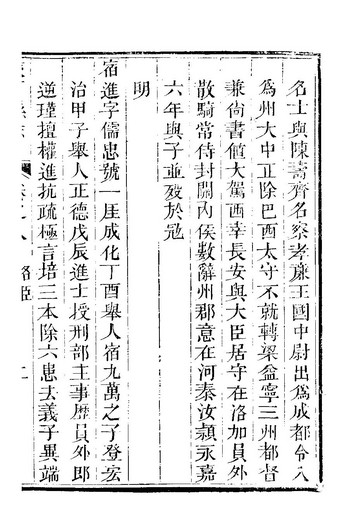 名士與陳壽齊名察孝廉王國中尉出爲成都令入
爲州大中正除巴西太守不就轉梁益寧三州都督
兼尚書値大駕西幸長安與大臣居守在洛加員外
散騎常侍封關內侯數辭州郡意在河秦汝潁永嘉
六年與子並歿於冦
明
宿進字儒忠號一厓成化丁酉舉人宿九萬之子登宏
治甲子舉人正德戊辰進士授刑部主事歷員外郎
逆瑾擅權進抗疏極言培三本除六患去義子異端